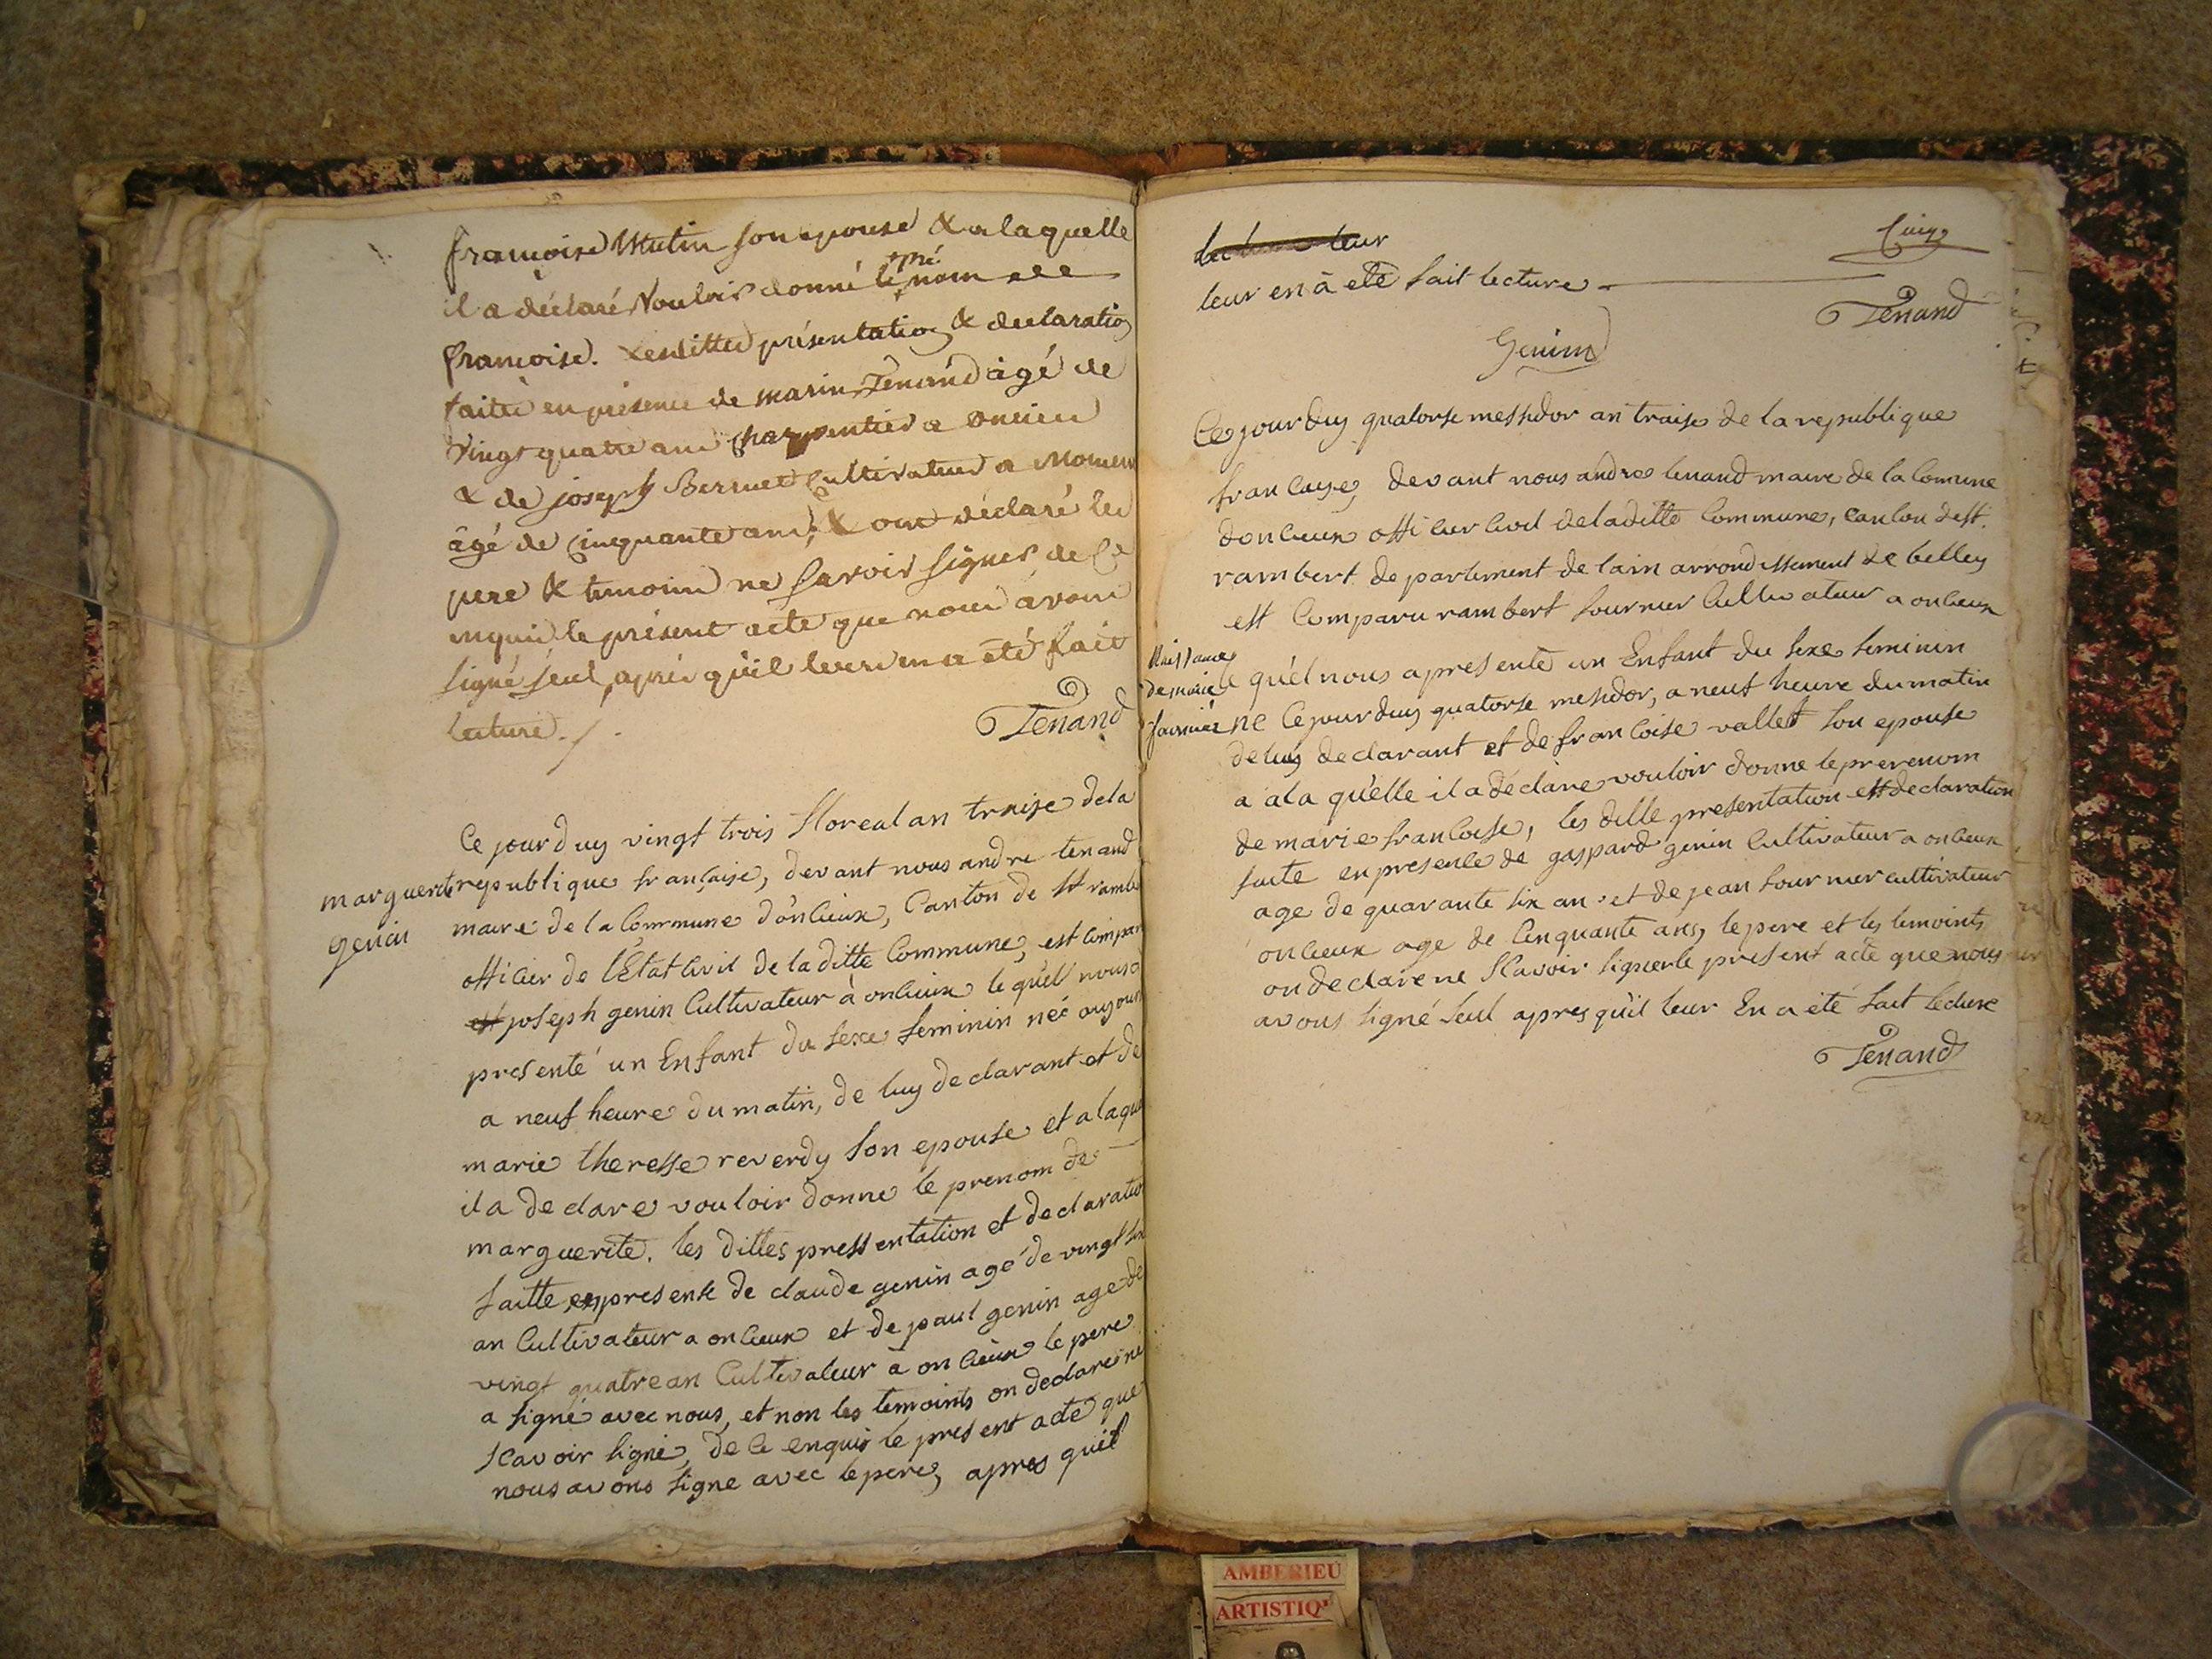 françoise Mutin son epouse & a laquelle
il a déclaré Vouloir donné le pré nom de
françoise. Lesdittes présentation & declaration
faitte en présence de marin Tenand âgé de
Vingt quatre ans charpentier a oncieu
& de joseph Bernet Cultivateur a
âgé de Cinquante ans; & ont déclaré les
pere & temoins ne savoir signer de Ce
enquis le présent acte que nous avons
signé seul, après qu'il leur en a été fait
lecture./.
Tenand
marguerite
genin
Ce jour duy vingt trois floreal an traise dela
republique française, devant nous andre tenand
maire de la Commune d'oncieux, Canton de st rambe
officier de l'Etat Civil de la ditte Commune, est compar
est joseph genin Cultivateur à oncieux le quél nous a
presenté un Enfant du sexe feminin neé aujour
a neuf heure du matin, de luy declarant et de
marie theresse reverdy son epouse et a laque
il a declare vouloir donne le prenom de
marguerite. les dittes pressentation et declaratio
faitte en presente de claude genin agé de vingt six
an Cultivateur a oncieux et de paul genin age de
vingt quatre an Cultivateur à oncieux le pere
a signé avec nous, et non les temoints on declare ne
scavoir signé, de ce enquis le present acte que
nous avons signe avec le pere, apres quél
leur
leur en à eté fait lecture
Genin
Tenand
Naissance
de marie
fournier
Ce jour duy quatorse messidor an traise de la republique
francaise, devant nous andre tenand maire de la Comune
doncieux officier civil de laditte Commune, canton de st.
rambert departement de lain arrondissement de belley
est Comparu rambert fournier Cultivateur a oncieux
le quél nous apresente un Enfant du sexe feminin
ne Ce jour duy quatorse messidor, a neuf heure du matin
de luy declarant et de francoise vallet son epouse
a ala qu'elle il a declare vouloir donne le prerenom
de marie francoise, les ditte presentation et declaration
faite en presence de gaspard genin Cultivateur a oncieux
age de quarante six an et de jean fournier cultivateur
oncieux age de Cenquante ans, le pere et les temoints
on declare ne scavoir signer le present acte que nous
avons signé seul apres qu'il leur En a été fait lecture
Tenand
AMBERIEU
ARTISTIQ'